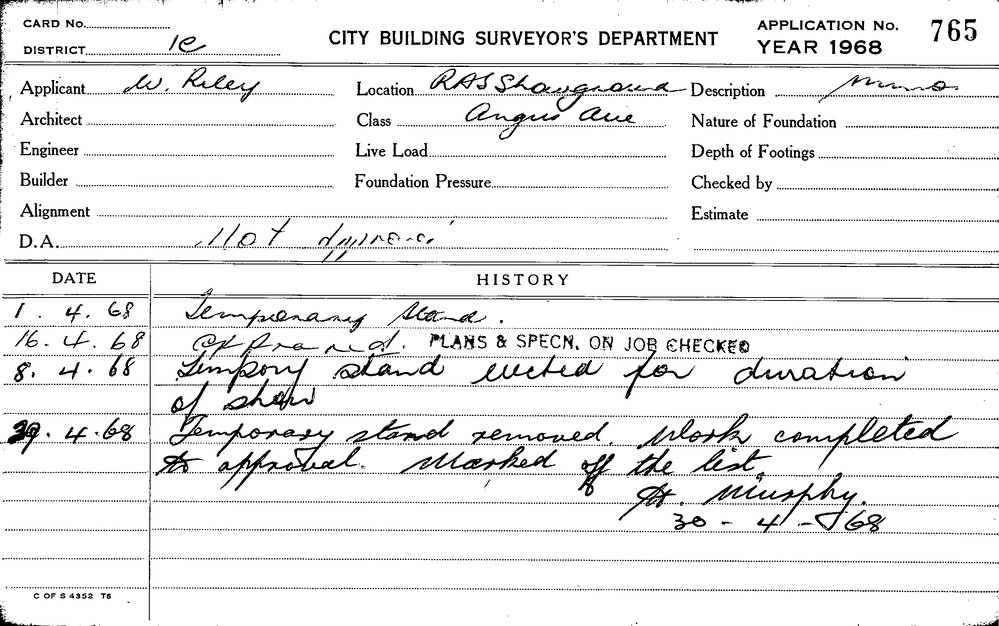 CARD No.
DISTRICT 1c
CITY BUILDING SURVEYOR'S DEPARTMENT
APPLICATION No. 765
YEAR 1968
Applicant W. Riley
Location RAS Showground
Description
Architect
Class Angus Ave
Nature of Foundation
Engineer
Live Load
Depth of Footings
Builder
Foundation Pressure
Checked by
Alignment
Estimate
D.A. Not
DATE
HISTORY
1. 4. 68 Temporary Stand.
16. 4. 68 Approved. PLANS & SPECN. ON JOB CHECKED
8. 4. 68 Tempory stand erected for duration
of show
29. 4. 68 Temporary stand removed. Work completed
to approval. Marked off the list.
Murphy.
30 - 4 - 68
C OF S 4352 T6